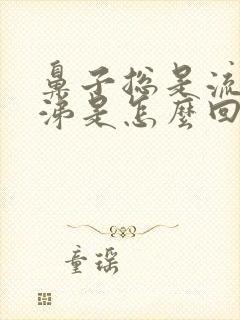 鼻子总是流
涕是怎麼回
童瑶